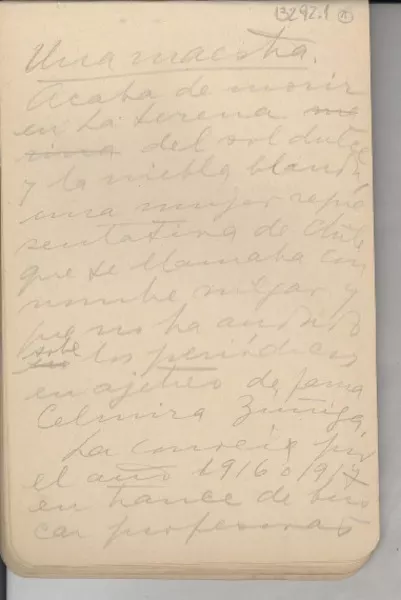 13292.1
Una maestra.
Acaba de morir
en La Serena
del sol dulce
y la niebla blanda,
una mujer repre
sentativa de Chile
que se llamaba con
nombre vulgar y
que no ha andado
sobre los periódicos
en ajetreo de fama
Celmira Zúñiga.
La conocí por
el año 1916 o 1917
en trance de bus
car profesoras